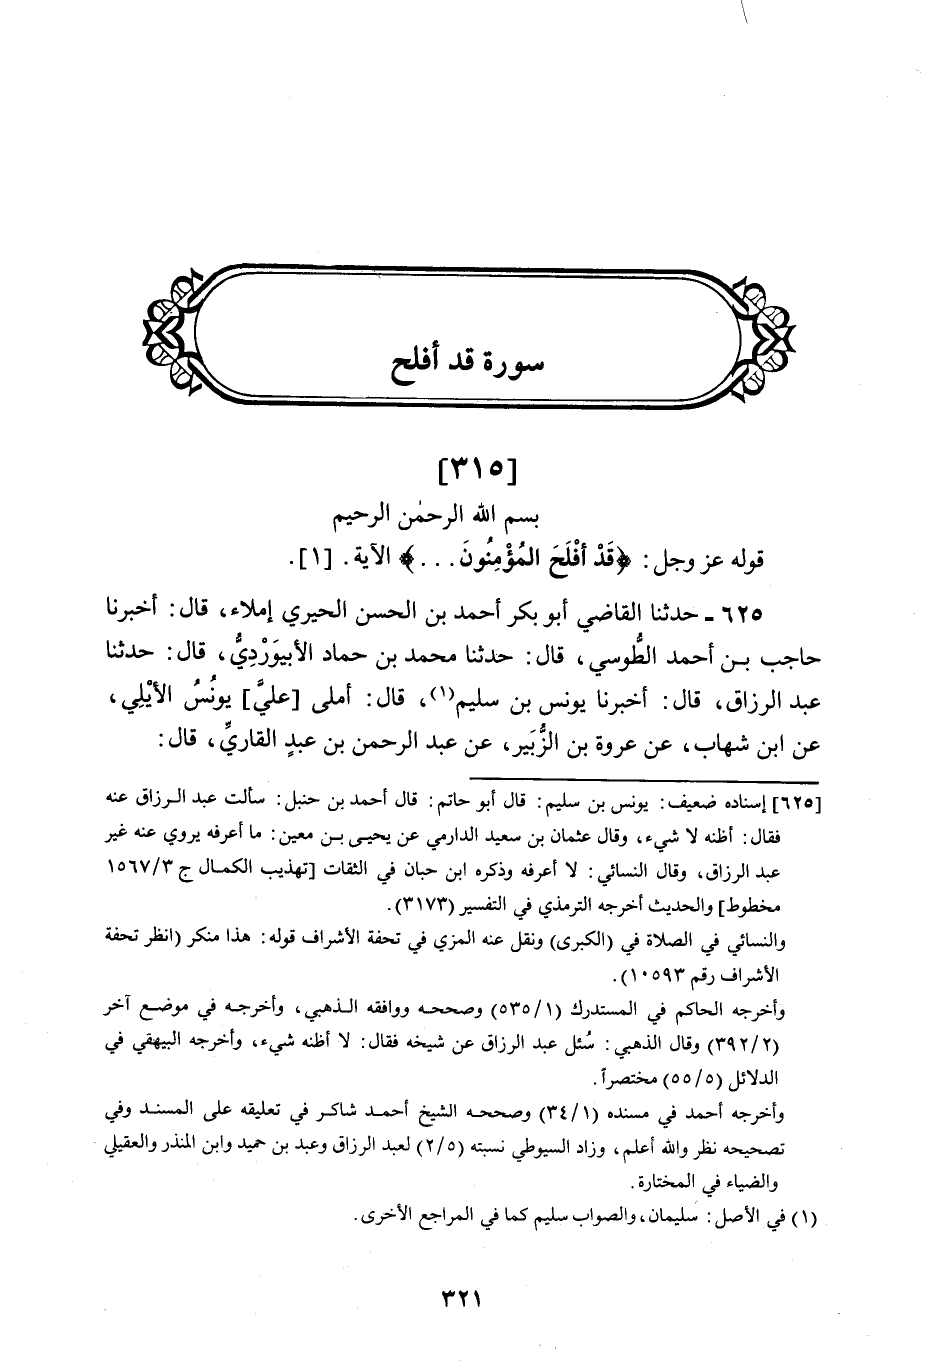 سورة قد أفلح
[٣١٥]
بسم الله الرحمٰن الرحيم
قوله عز وجل: ﴿قَدْ أَفْلَحَ المُؤْمِنُونَ...﴾ الآية. [١].
٦٢٥ ـ حدثنا القاضي أبو بكر أحمد بن الحسن الحيري إملاء، قال: أخبرنا
حاجب بن أحمد الطُّوسي، قال: حدثنا محمد بن حماد الأبيوَرْدِيُّ، قال: حدثنا
عبد الرزاق، قال: أخبرنا يونس بن سليم(١)، قال: أملى [عليَّ] يونُسُ الأيْلِي،
عن ابن شهاب، عن عروة بن الزُّبَير، عن عبد الرحمن بن عبدٍ القاريِّ، قال:
[٦٢٥] إسناده ضعيف: يونس بن سليم: قال أبو حاتم: قال أحمد بن حنبل: سألت عبد الرزاق عنه
فقال: أظنه لا شيء، وقال عثمان بن سعيد الدارمي عن يحيى بن معين: ما أعرفه يروي عنه غير
عبد الرزاق، وقال النسائي: لا أعرفه وذكره ابن حبان في الثقات [تهذيب الكمال ج ١٥٦٧/٣
مخطوط] والحديث أخرجه الترمذي في التفسير (٣١٧٣).
والنسائي في الصلاة في (الكبرى) ونقل عنه المزي في تحفة الأشراف قوله: هذا منكر (انظر تحفة
الأشراف رقم ١٠٥٩٣).
وأخرجه الحاكم في المستدرك (٥٣٥/١) وصححه ووافقه الذهبي، وأخرجه في موضع آخر
(٣٩٢/٢) وقال الذهبي: سُئل عبد الرزاق عن شيخه فقال: لا أظنه شيء، وأخرجه البيهقي في
الدلائل (٥٥/٥) مختصراً.
وأخرجه أحمد في مسنده (٣٤/١) وصححه الشيخ أحمد شاكر في تعليقه على المسند وفي
تصحيحه نظر والله أعلم، وزاد السيوطي نسبته (٢/٥) لعبد الرزاق وعبد بن حميد وابن المنذر والعقيلي
والضياء في المختارة.
(١) في الأصل: سليمان، والصواب سليم كما في المراجع الأخرى.
٣٢١